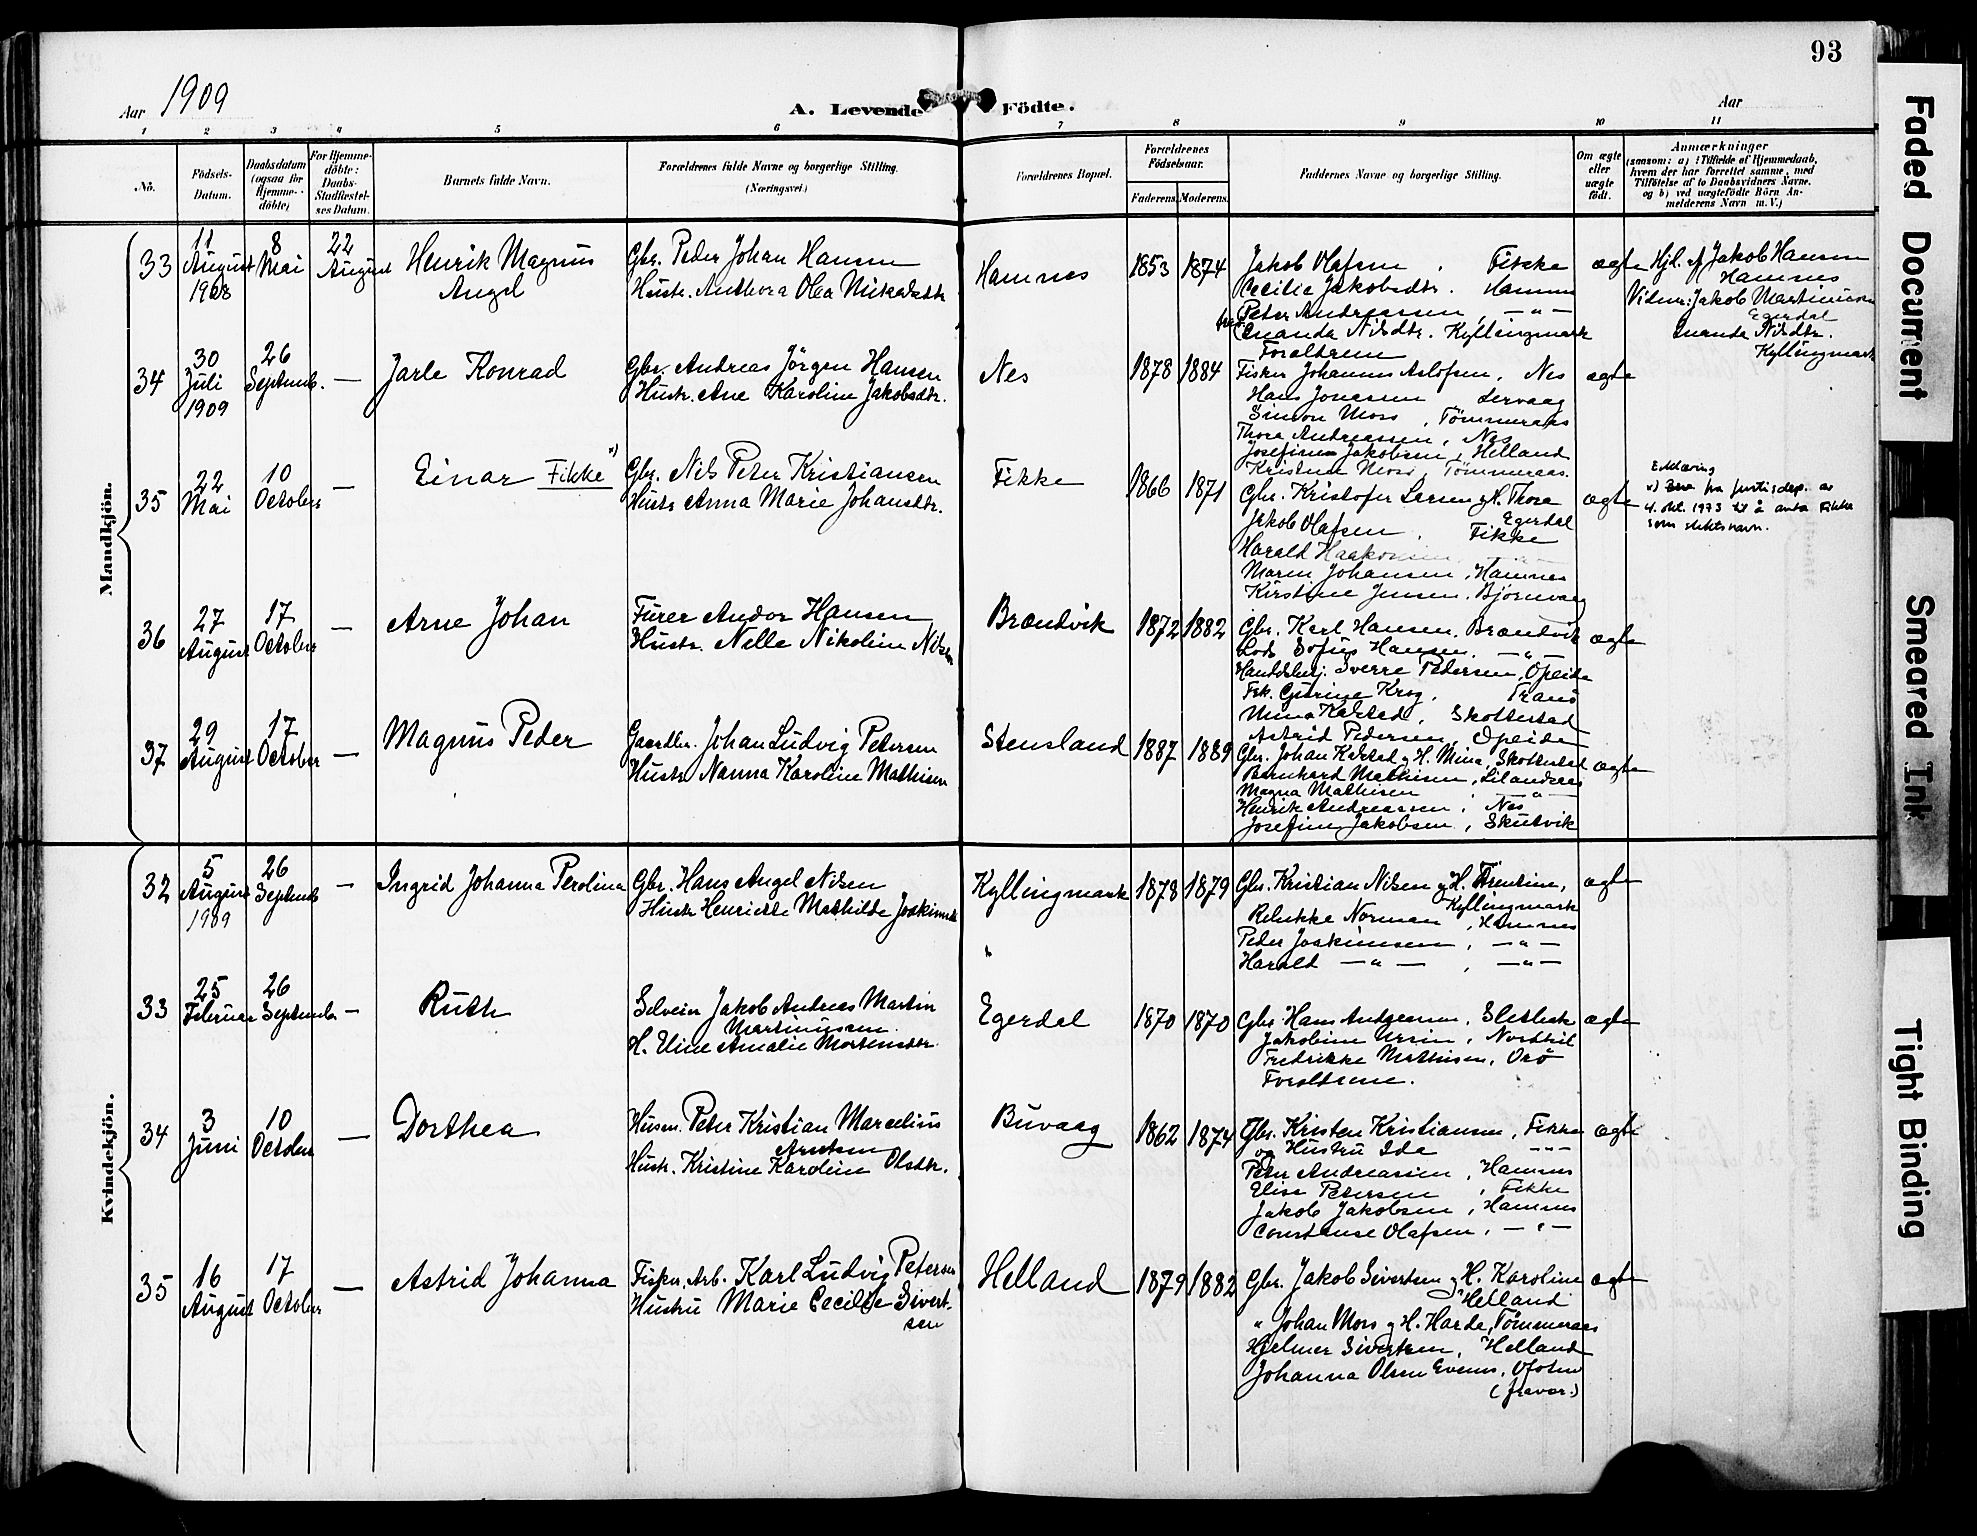 93
Aar 1909
A. Levende Födte.
Aar
1 2 3 4 5 6 7 8 9 10 11
No.
Födsels-
Datum.
Daabsdatum
(ogsaa for
Hjemme-
döbte)
For Hjemme-
döbte:
Daabs-
Stadfæstel-
ses Datum.
Barnets fulde Navn.
Forældrenes fulde Navne og borgerlige Stilling.
(Næringsvei.)
Forældrenes Bopæl.
Forældrenes
Födselsaar.
Faderens. Moderens.
Faddernes Navne og borgerlige Stilling.
Om ægte
eller
uægte
födt.
Anmærkninger
(saasom: a) i Tilfælde af Hjemmedaab,
hvem der har forrettet samme, med
Tilföielse af to Daabsvidners Navne,
og b) ved uægtefödte Börn An-
melderens Navn m. V.)
Mandkjön.
33
11
August
1908
8
Mai
22
August
Henrik Magnus
Angel
Gbr. Peder Johan Hansen
Hustr. Anthora Olea Mikalsdtr.
Hamnes
1853 1874
Jakob Olafsen . Fikke
Cecilie Jakobsdtr. Hamnes
Peter Andreassen, — " —
Enanda Nilsdtr. Kyllingmark
Foraldrene
ægte
Hjd. af Jakob Hansen
Hamnes
Vidner: Jakob Martinusen
Egerdal
Enanda Nilsdtr.
Kyllingmark
34
30
Juli
1909
26
Septemb.
—
Jarle Konrad
Gbr. Andreas Jörgen Hansen
Hustr. Ane Karoline Jakobsdtr.
Nes
1878 1884
Fisker Johannes Aslofsen, Nes
Hans Jonassen Lervaag
Simon Mors, Tömmeraas
Thora Andreassen, Nes
Josefine Jakobsen, Helland
Kristine Mors, Tømmeraas.
ægte
35
22
Mai
10
October
—
Einar Fikke x)
Gbr. Nils Peter Kristiansen
Hustr Anna Marie Johansdtr.
Fikke
1866 1871
Gbr. Kristofer Larsen og H. Thora
Egerdal
Jakob Olafsen, Fikke
Harald Haakonsen — " —
Maren Johansen, Hamnes
Kirstine Jensen, Bjørnvaag
ægte
Erklæring
x) fra Justisdep. av
4. okt. 1973 til å anta Fikke
som slektsnavn.
36
27
August
17
October
—
Arne Johan
Furer Andor Hansen
Hustr. Nelle Nikoline Nilsen
Brændvik
1872 1882
Gbr. Karl Hansen, Brændvik
Lods Sofus Hansen. — " —
Handelsbetj. Sverre Pedersen, Opeide
Frk. Gurine Krog, Tranö
Mina Karstad, Skotterstad
Astrid Pedersen, Opeide
ægte
37
29
August
17
October
—
Magnus Peder
Gaardbr. Johan Ludvig Petersen
Hustr Nanna Karoline Mathisen
Stensland
1887 1889
Gbr. Johan Karstad og H. Mina, Skotterstad
Bernhard Mathisen, Lilandsaas
Magna Mathisen — " —
Henrik Andreassen, Nes
Josefine Jakobsen, Skutvik
ægte
Kvindekjön.
32
5
August
1909
26
Septemb
—
Ingrid Johanna Perolina
Gbr. Hans Angel Nilsen
Hustr Henriette Mathilde Joakimsdtr
Kyllingmark
1878 1879
Gbr. Kristian Nilsen og H. Arentine,
Kyllingmark
Rebekke Norman, Hamnes
Peder Joakimsen, — " —
Harald — " — , — " —
ægte
33
25
Februar
26
Septembr
—
Ruth
Selveier Jakob Andreas Martin
Martinussen
H. Eline Amalie Mortensdtr.
Egerdal
1870 1870
Gbr. Hans Andreassen, Sletbak
Jakobine Ursin, Nordkil
Fredrikke Mathisen, Orö
Foraldrene.
ægte
34
3
Juni
10
October
—
Dorthea
Husm. Peter Kristian Marcelius
Arntsen
Hustr. Kristine Karoline Olsdtr.
Buvaag
1862 1874
Gbr. Kristen Kristiansen, Fikke
og Hustru Ida — " —
Peter Andreassen, Hamnes
Elise Petersen, Fikke
Jakob Jakobsen, Hamnes
Constanse Olafsen, — " —
ægte
35
16
August
17
October
—
Astrid Johanna
Fisker, Arb. Karl Ludvig Petersen
Hustru Marie Cecilie Sivert-
sen
Helland
1879 1882
Gbr. Jakob Sivertsen og H. Karoline
Helland
" Johan Mors og H. Harde, Tömmeraas
Hjelmer Sivertsen, Helland
Johanna Olsen Evenes, Ofoten
(fravær.)
ægte
Faded Document
Smeared Ink
Tight Binding